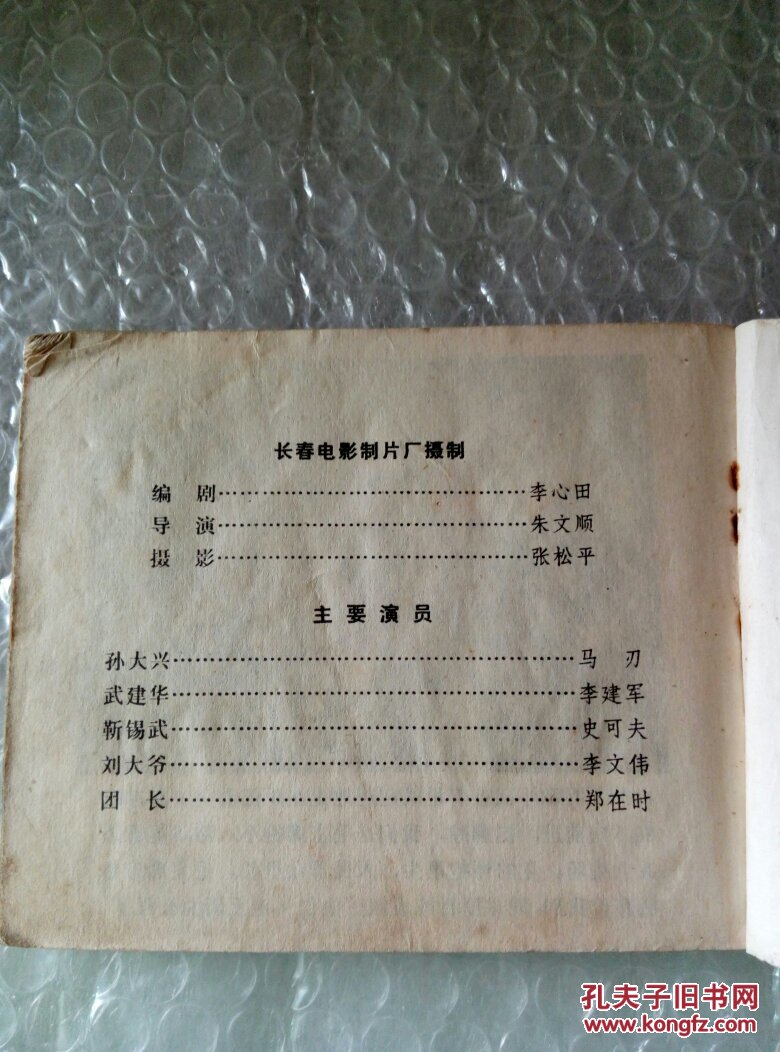 长春电影制片厂摄制
编 剧……………………………………李心田
导 演……………………………………朱文顺
摄 影……………………………………张松平
主要演员
孙大兴……………………………………马 刃
武建华……………………………………李建军
靳锡武……………………………………史可夫
刘大爷……………………………………李文伟
团 长……………………………………郑在时
孔夫子旧书网
www.kongfz.com